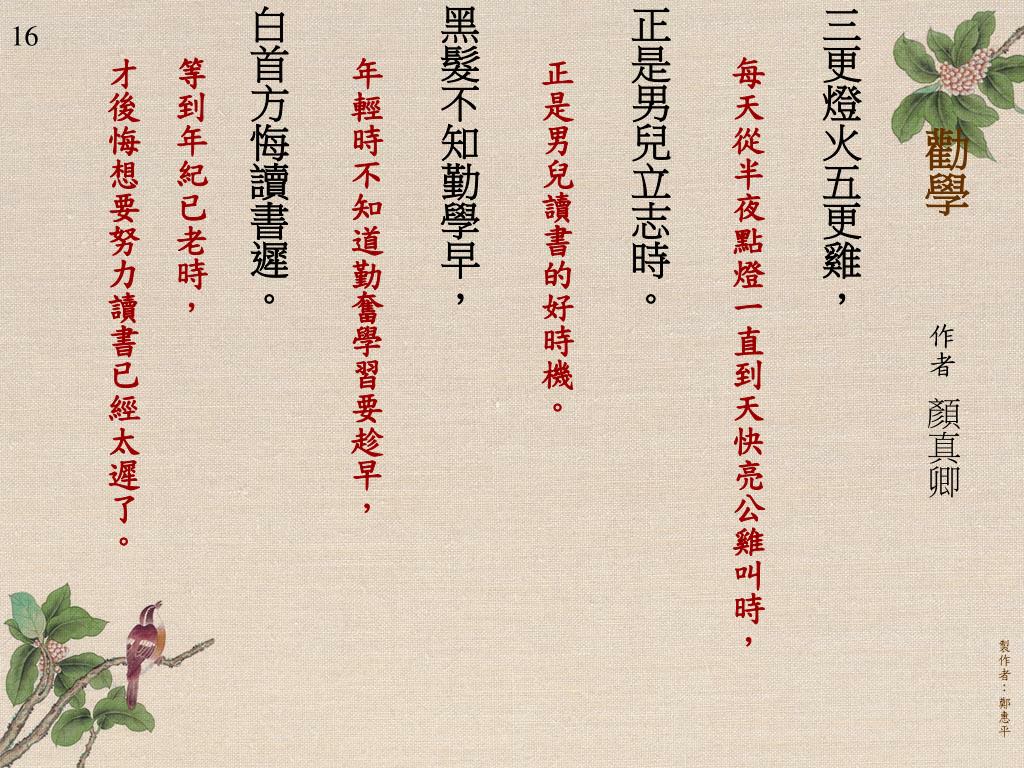 勸學
作者 顏真卿
三更燈火五更雞，
每天從半夜點燈一直到天快亮公雞叫時，
正是男兒立志時。
正是男兒讀書的好時機。
黑髮不知勤學早，
年輕時不知道勤奮學習要趁早，
白首方悔讀書遲。
等到年紀已老時，
才後悔想要努力讀書已經太遲了。
16
製作者：鄭惠平